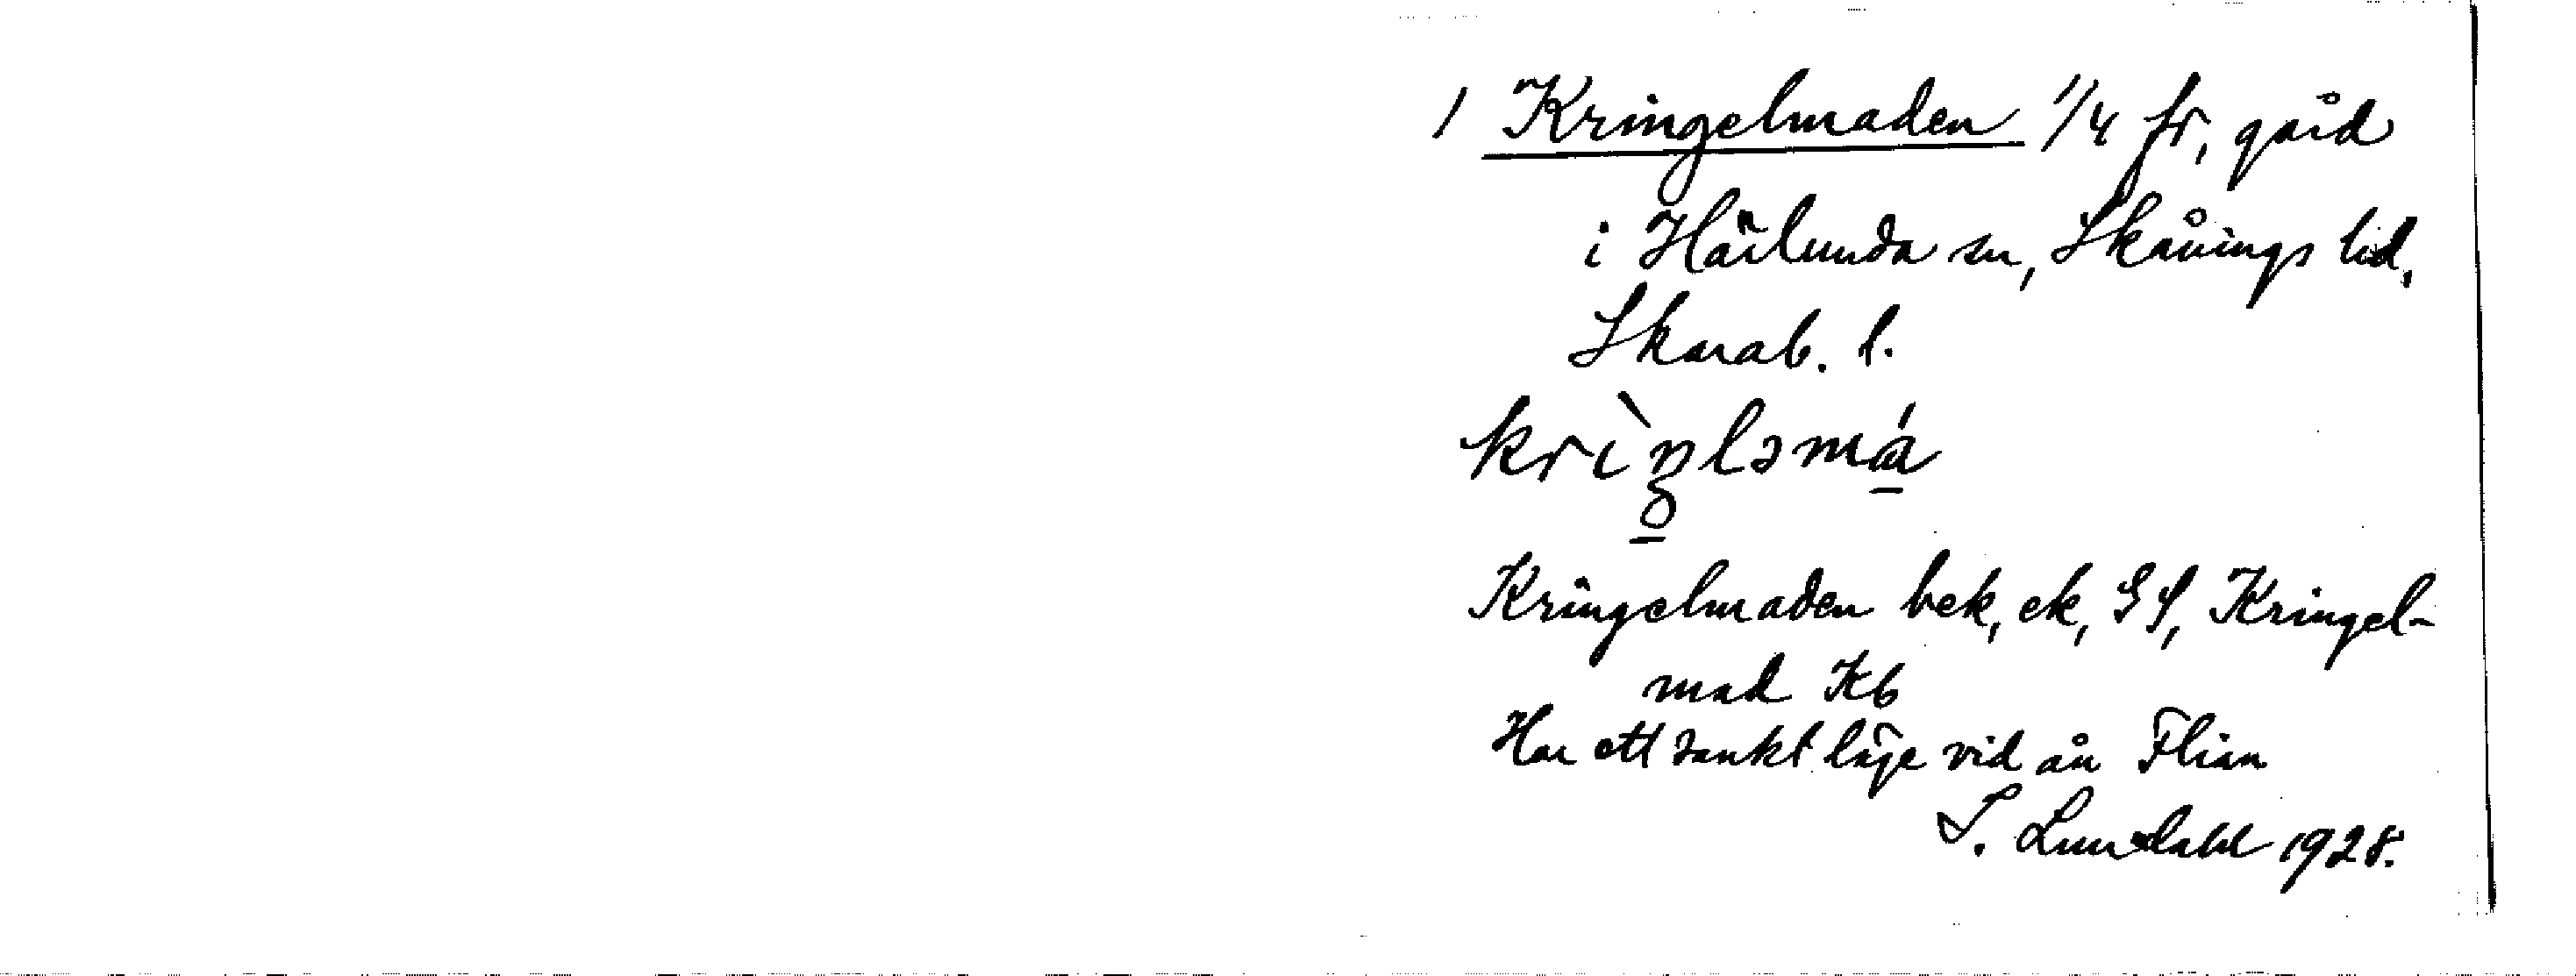 1 Kringelmaden 1/4 fr, gård
i Härlunda sn, Skånings hd,
Skarab. l.
krìŋləmá
Kringelmaden bek, ek, GS, Kringel-
mad Kb
Har ett sankt läge vid ån Flian
S. Lundahl 1928.